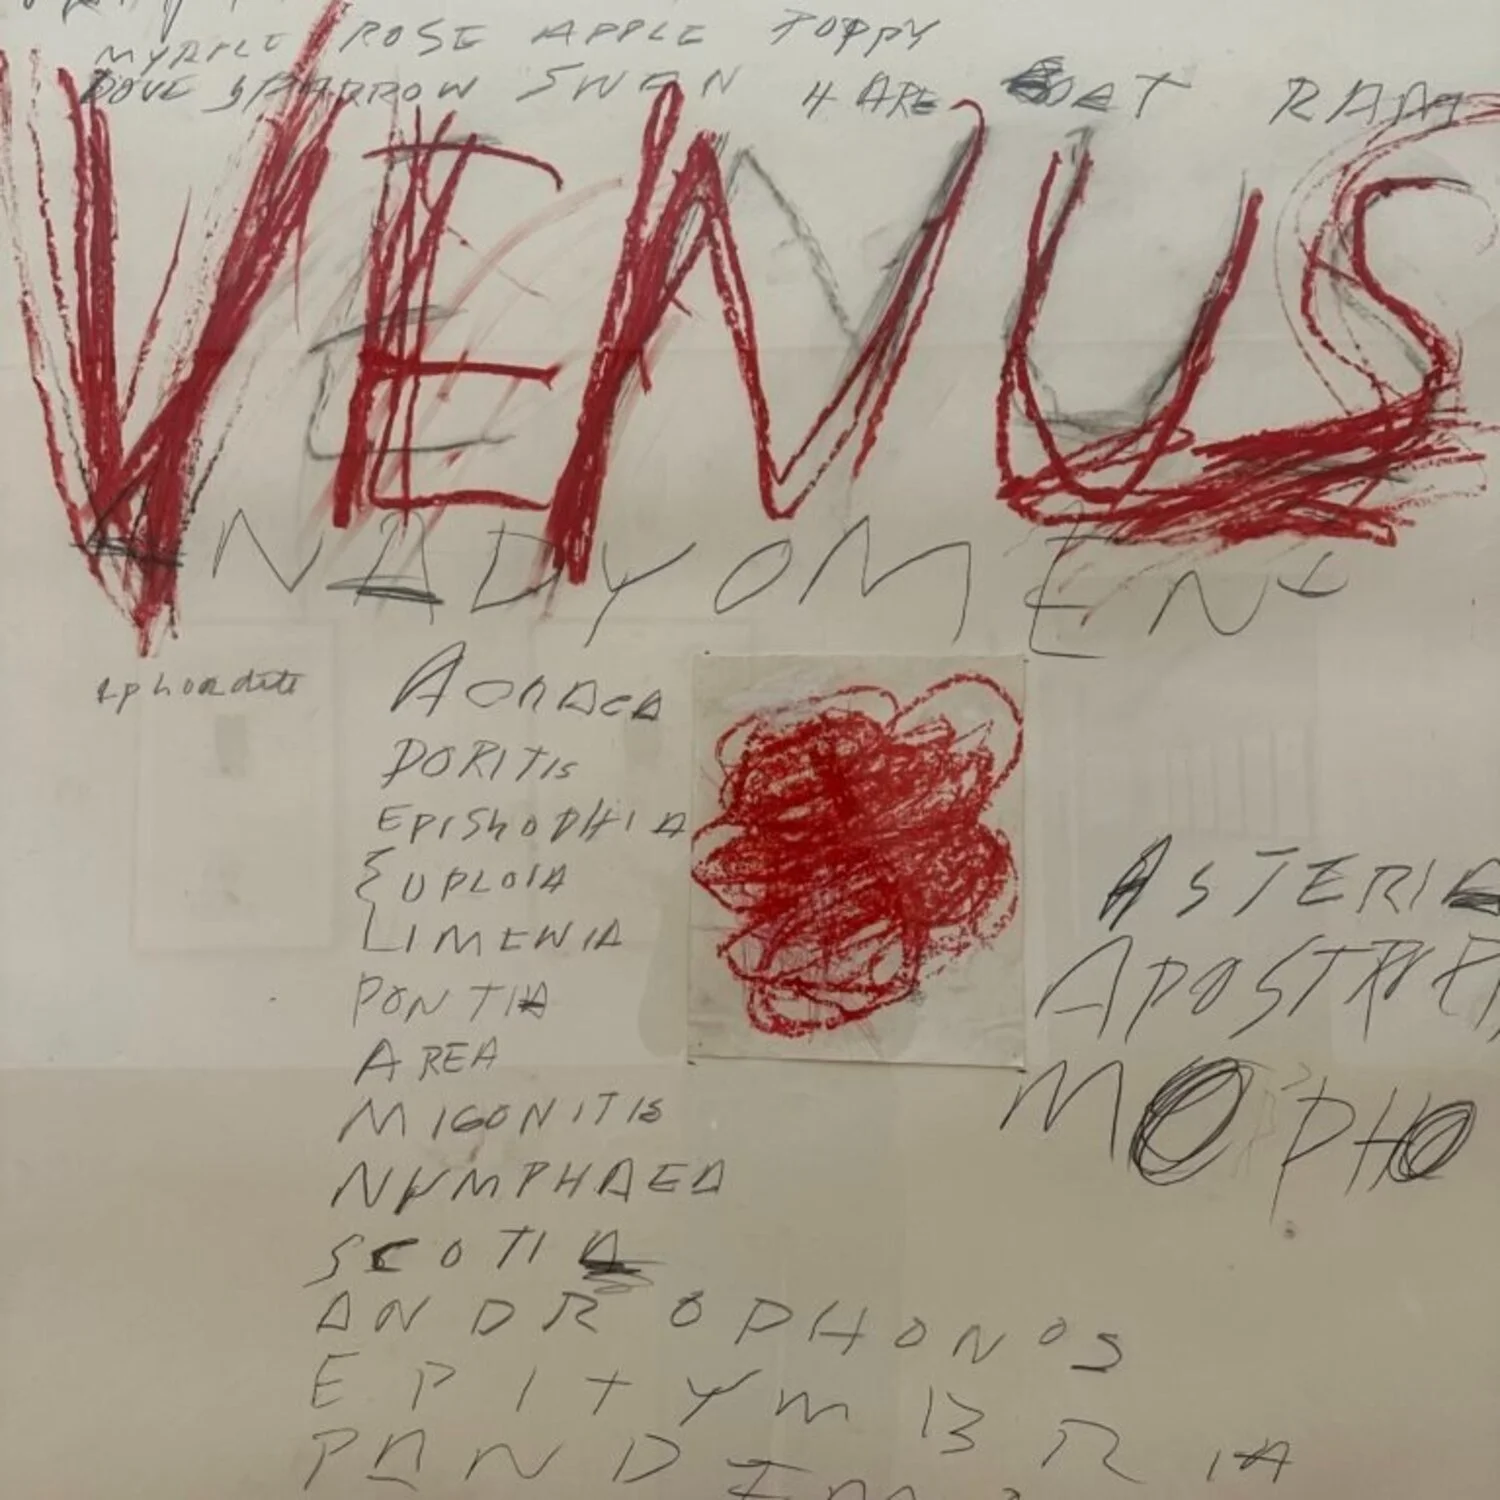 MYRTLE ROSE APPLE POPPY
DOVE SPARROW SWAN HARE GOAT RAM
VENUS
ANADYOMENE
Aphrodite
AcRAEA
DORITIS
EPISkOPHIA
EUPLOIA
LIMENIA
PONTIA
AREA
MIGONITIS
NYMPHAEA
SCOTIA
ANDROPHONOS
EPITYMBRIA
PANDEM
ASTERIA
APOSTROP
MORPHO